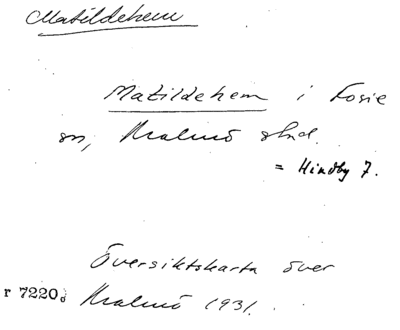 Matildehem
Matildehem i Fosie
sn, Malmö stad.
= Hindby 7.
Översiktskarta över
r 7220. Malmö 1931.